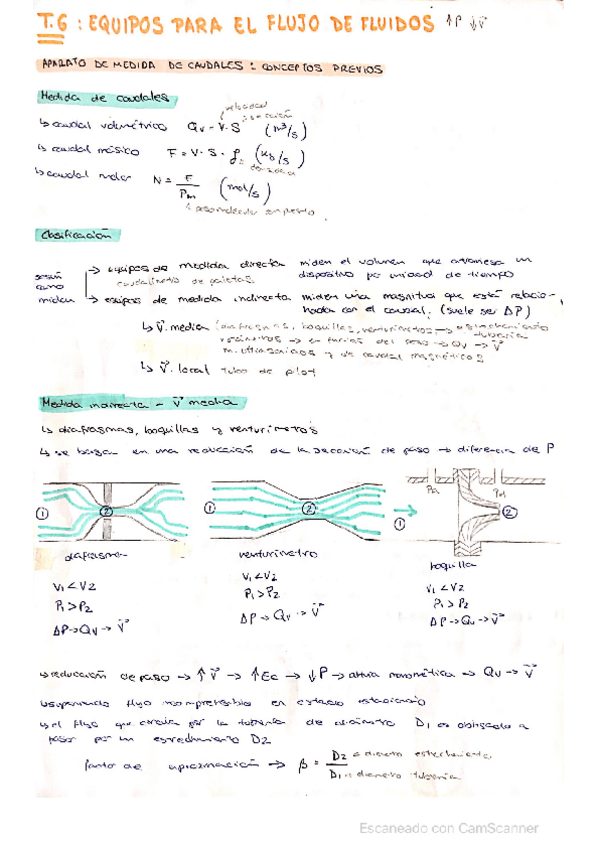 T.6 : EQUIPOS PARA EL FLUJO DE FLUIDOS ↑P ↓v⃗
APARATO DE MEDIDA DE CAUDALES : CONCEPTOS PREVIOS
Medida de caudales
velocidad
sección
↳ caudal volumétrico Qv = V · S (m³/s)
↳ caudal másico F = V · S · ρ (kg/s)
densidad
↳ caudal molar N = F / Pm (mol/s)
peso molecular
Clasificación
según como miden
→ equipos de medida directa miden el volumen que atraviesa un dispositivo por unidad de tiempo
caudalímetro de paletas
→ equipos de medida indirecta miden una magnitud que está relacio-
nada con el caudal. (suele ser ΔP)
↳ v⃗. media (diafragmas, boquillas, venturímetros → estrechamiento tubería
rotámetros → Qv → v⃗
m. ultrasonidos y de caudal magnéticos
↳ v⃗. local tubo de pitot
Medida indirecta - v⃗ media
↳ diafragmas, boquillas y venturímetros
↳ se basan en una reducción de la sección de paso → diferencia de P
① ② ① ② ① ②
diafragma venturímetro boquilla
V1 < V2 V1 < V2 V1 < V2
P1 > P2 P1 > P2 P1 > P2
ΔP → Qv → v⃗ ΔP → Qv → v⃗ ΔP → Qv → v⃗
↳ reducción de paso → ↑ v⃗ → ↑ Ec → ↓ P → altura manométrica → Qv → v⃗
↳ suponiendo flujo incompresible en estado estacionario
↳ el flujo que circula por la tubería de diámetro D1 es obligado a
pasar por un estrechamiento D2
Punto de aproximación → β = D2 = diámetro estrechamiento
D1 = diámetro tubería
Escaneado con CamScanner